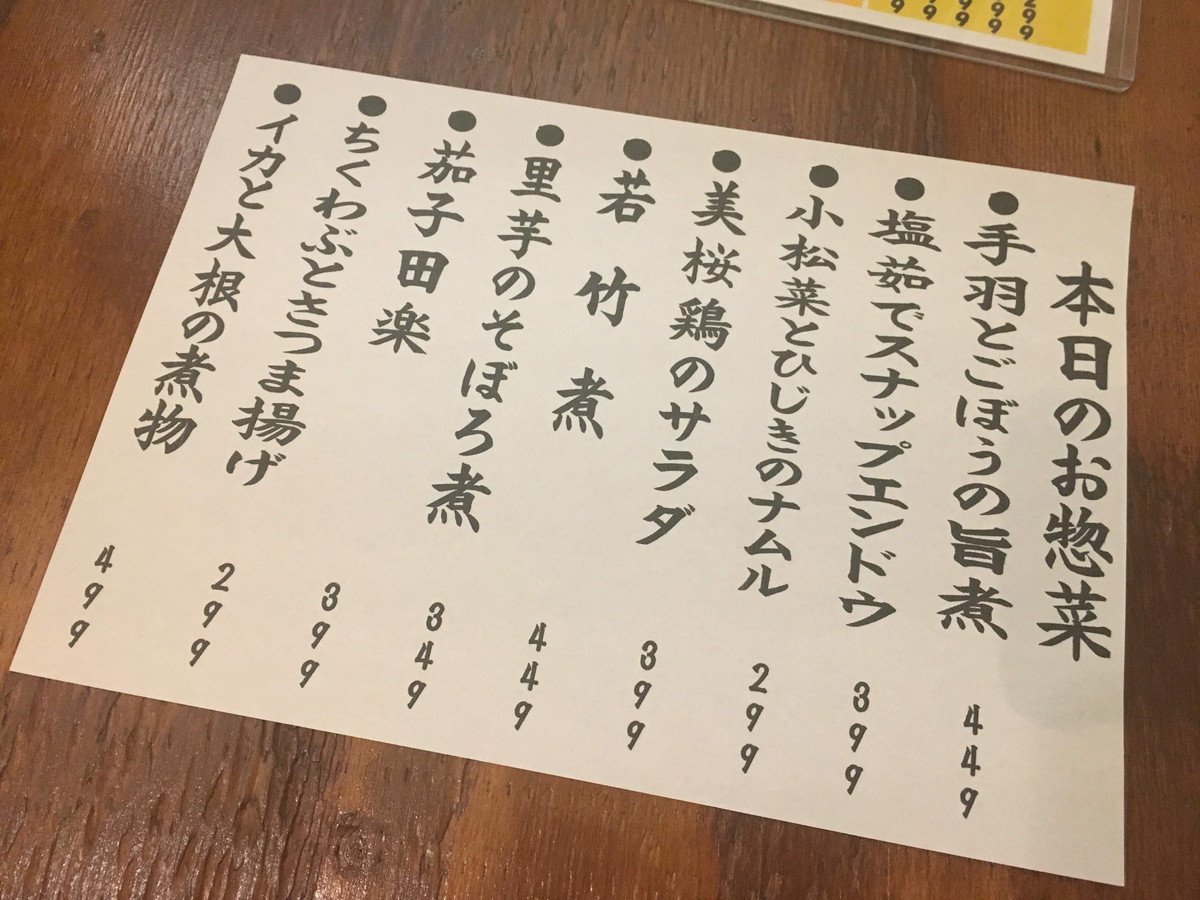 本日のお惣菜
●手羽とごぼうの旨煮 449
●塩茹でスナップエンドウ 399
●小松菜とひじきのナムル 299
●美桜鶏のサラダ 399
●若竹煮 449
●里芋のそぼろ煮 349
●茄子田楽 399
●ちくわぶとさつま揚げ 299
●イカと大根の煮物 499